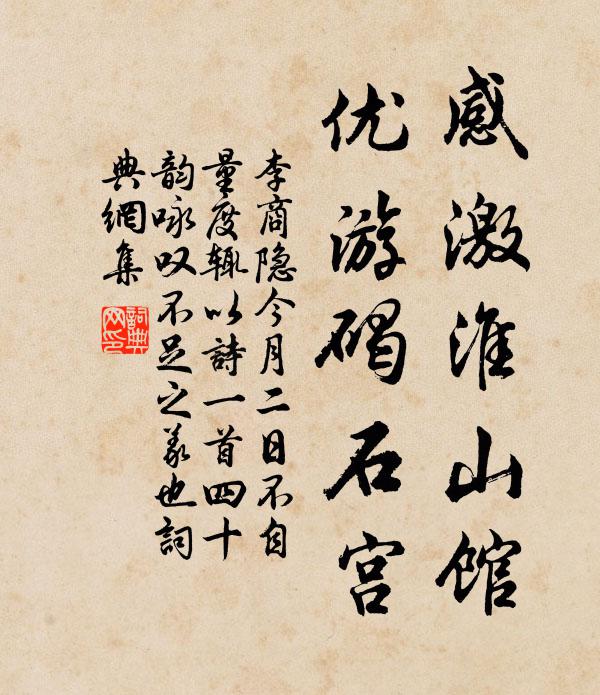 感激淮山馆
优游碣石宫
李商隐今月二日不自
量度輒以詩一首四十
韵咏叹不足之義也詞
典網集
詞典
网印